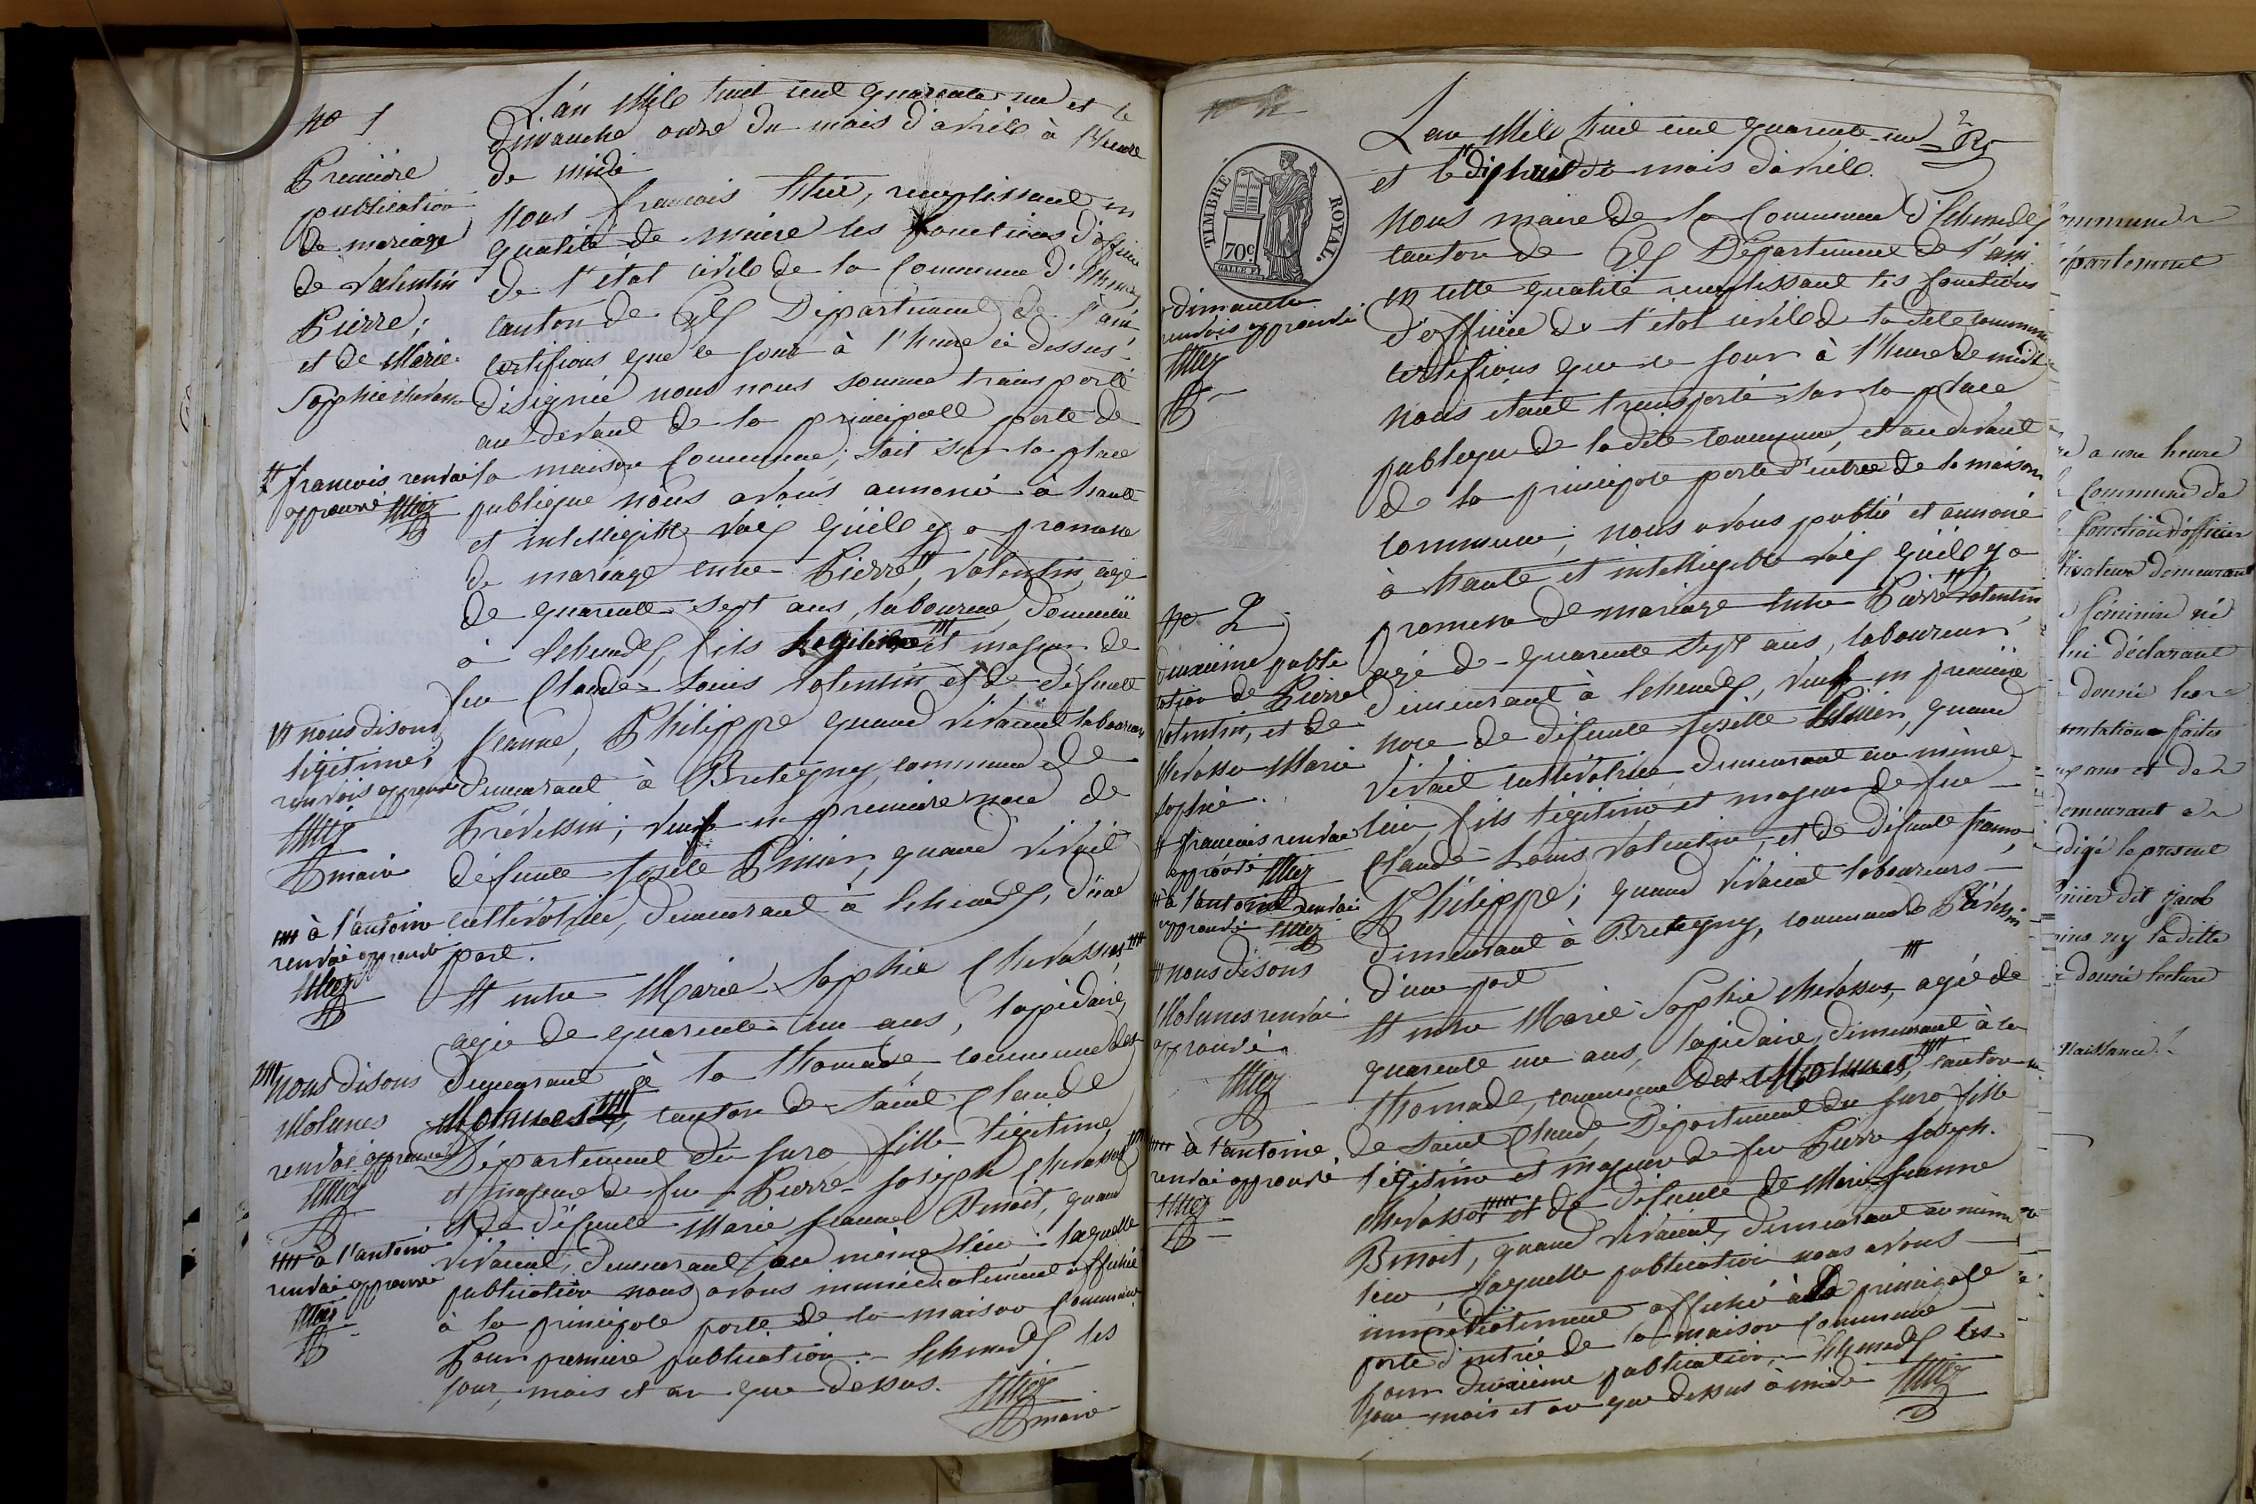 no 1
Première
publication
de mariage
de Valentin
Pierre;
et de Marie
Sophie Chevassu
# françois renvoi
approuvé
## nous disons
légitime;
renvois approuvé
maire
### à l'antoine
renvoi approuvé
nous disons
Molunes
renvoi approuvé
à l'antoine
renvoi approuvé
L'an Mil huit cent quarante un et le
dimanche onze du mois d'avril à l'heure
de midi
Nous françois, remplissant en
qualité de maire les fonctions d'officier
de l'état civil de la Commune d'Echenevex
canton de Gex Département de l'ain
certifions que ce jour à l'heure ci dessus
désignée nous nous somme transporté
au devant de la principale porte de
la maison Commune; soit sur la place
publique nous avons annoncé à haute
et intelligible voix qu'il y a promesse
de mariage entre Pierre, Valentin, agé
de quarente sept ans, laboureur, domicilié
à Echenevex, fils et majeur de
feu Claude Louis Valentin et de défunte
Jeanne, Philippe quand vivaient laboureurs
demeurant à Bretegny, commune de
Prévessin; veuf en première noce de
défunte Josette, quand vivait
cultivatrice, demeurant à Echenevex, d'une
part.
Et entre Marie Sophie Chevassus
agée de quarente un ans, lapidaire,
demeurant à la thomade, commune des
Molunes, canton de Saint Claude
Département du Jura fille légitime
et majeure de feu Pierre Joseph Chevassus
et de défunte Marie Jeanne Benoit, quand
vivaient, demeurant au même lieu; laquelle
publication nous avons immédiatement affiché
à la principale porte de la maison Commune
Pour première publication. Echenevex les
jour, mois et an que dessus.
maire
2
TIMBRE ROYAL
70c
dimanche
renvois approuvé
no 2
deuxième publi
cation de Pierre
Valentin, et de
Chevassu Marie
Sophie.
# françois renvoi
approuvé
## à l'antoine renvoi
approuvé
nous disons
Molunes renvoi
approuvé
à l'antoine
renvoi approuvé
L'an Mil huit cent quarente un
et le dix huit du mois d'avril.
Nous maire de la Commune d'Echenevex
canton de Gex Département de l'ain
en cette qualité remplissant les fonctions
d'officier de l'état civil de la dite commune
certifions que ce jour à l'heure de midi
Nous étant transporté sur la place
publique de la dite commune, et au devant
de la principale porte d'entrée de la maison
commune, nous avons publié et annoncé
à haute et intelligible voix qu'il y a
promesse de mariage entre Pierre Valentin
agé de quarente sept ans, laboureur
demeurant à Echenevex, veuf en première
noce de défunte Josette, quand
vivait cultivatrice demeurant au même
lieu, fils légitime et majeur de feu
Claude Louis Valentin, et de défunte Jeanne
Philippe; quand vivaient laboureurs
demeurant à Bretegny, commune de Prévessin
d'une part
Et entre Marie Sophie Chevassus, agée de
quarente un ans, lapidaire, demeurant à la
thomade, commune des Molunes, canton
de Saint Claude, Département du Jura fille
légitime et majeure de feu Pierre Joseph
Chevassus et de défunte de Marie Jeanne
Benoit, quand vivaient, demeurant au même
lieu, laquelle publication nous avons
immédiatement affiché à la principale
porte d'entrée de la maison Commune
Pour deuxième publication, Echenevex les
jour mois et an que dessus à midi
ommune
épartement
a une heure
Commune de
fonction d'officier
demeurant
féminin né
lui déclarant
donné
faites
ans et de
demeurant
digé le présent
dit Jacob
ny la ditte
donné lecture
naissance